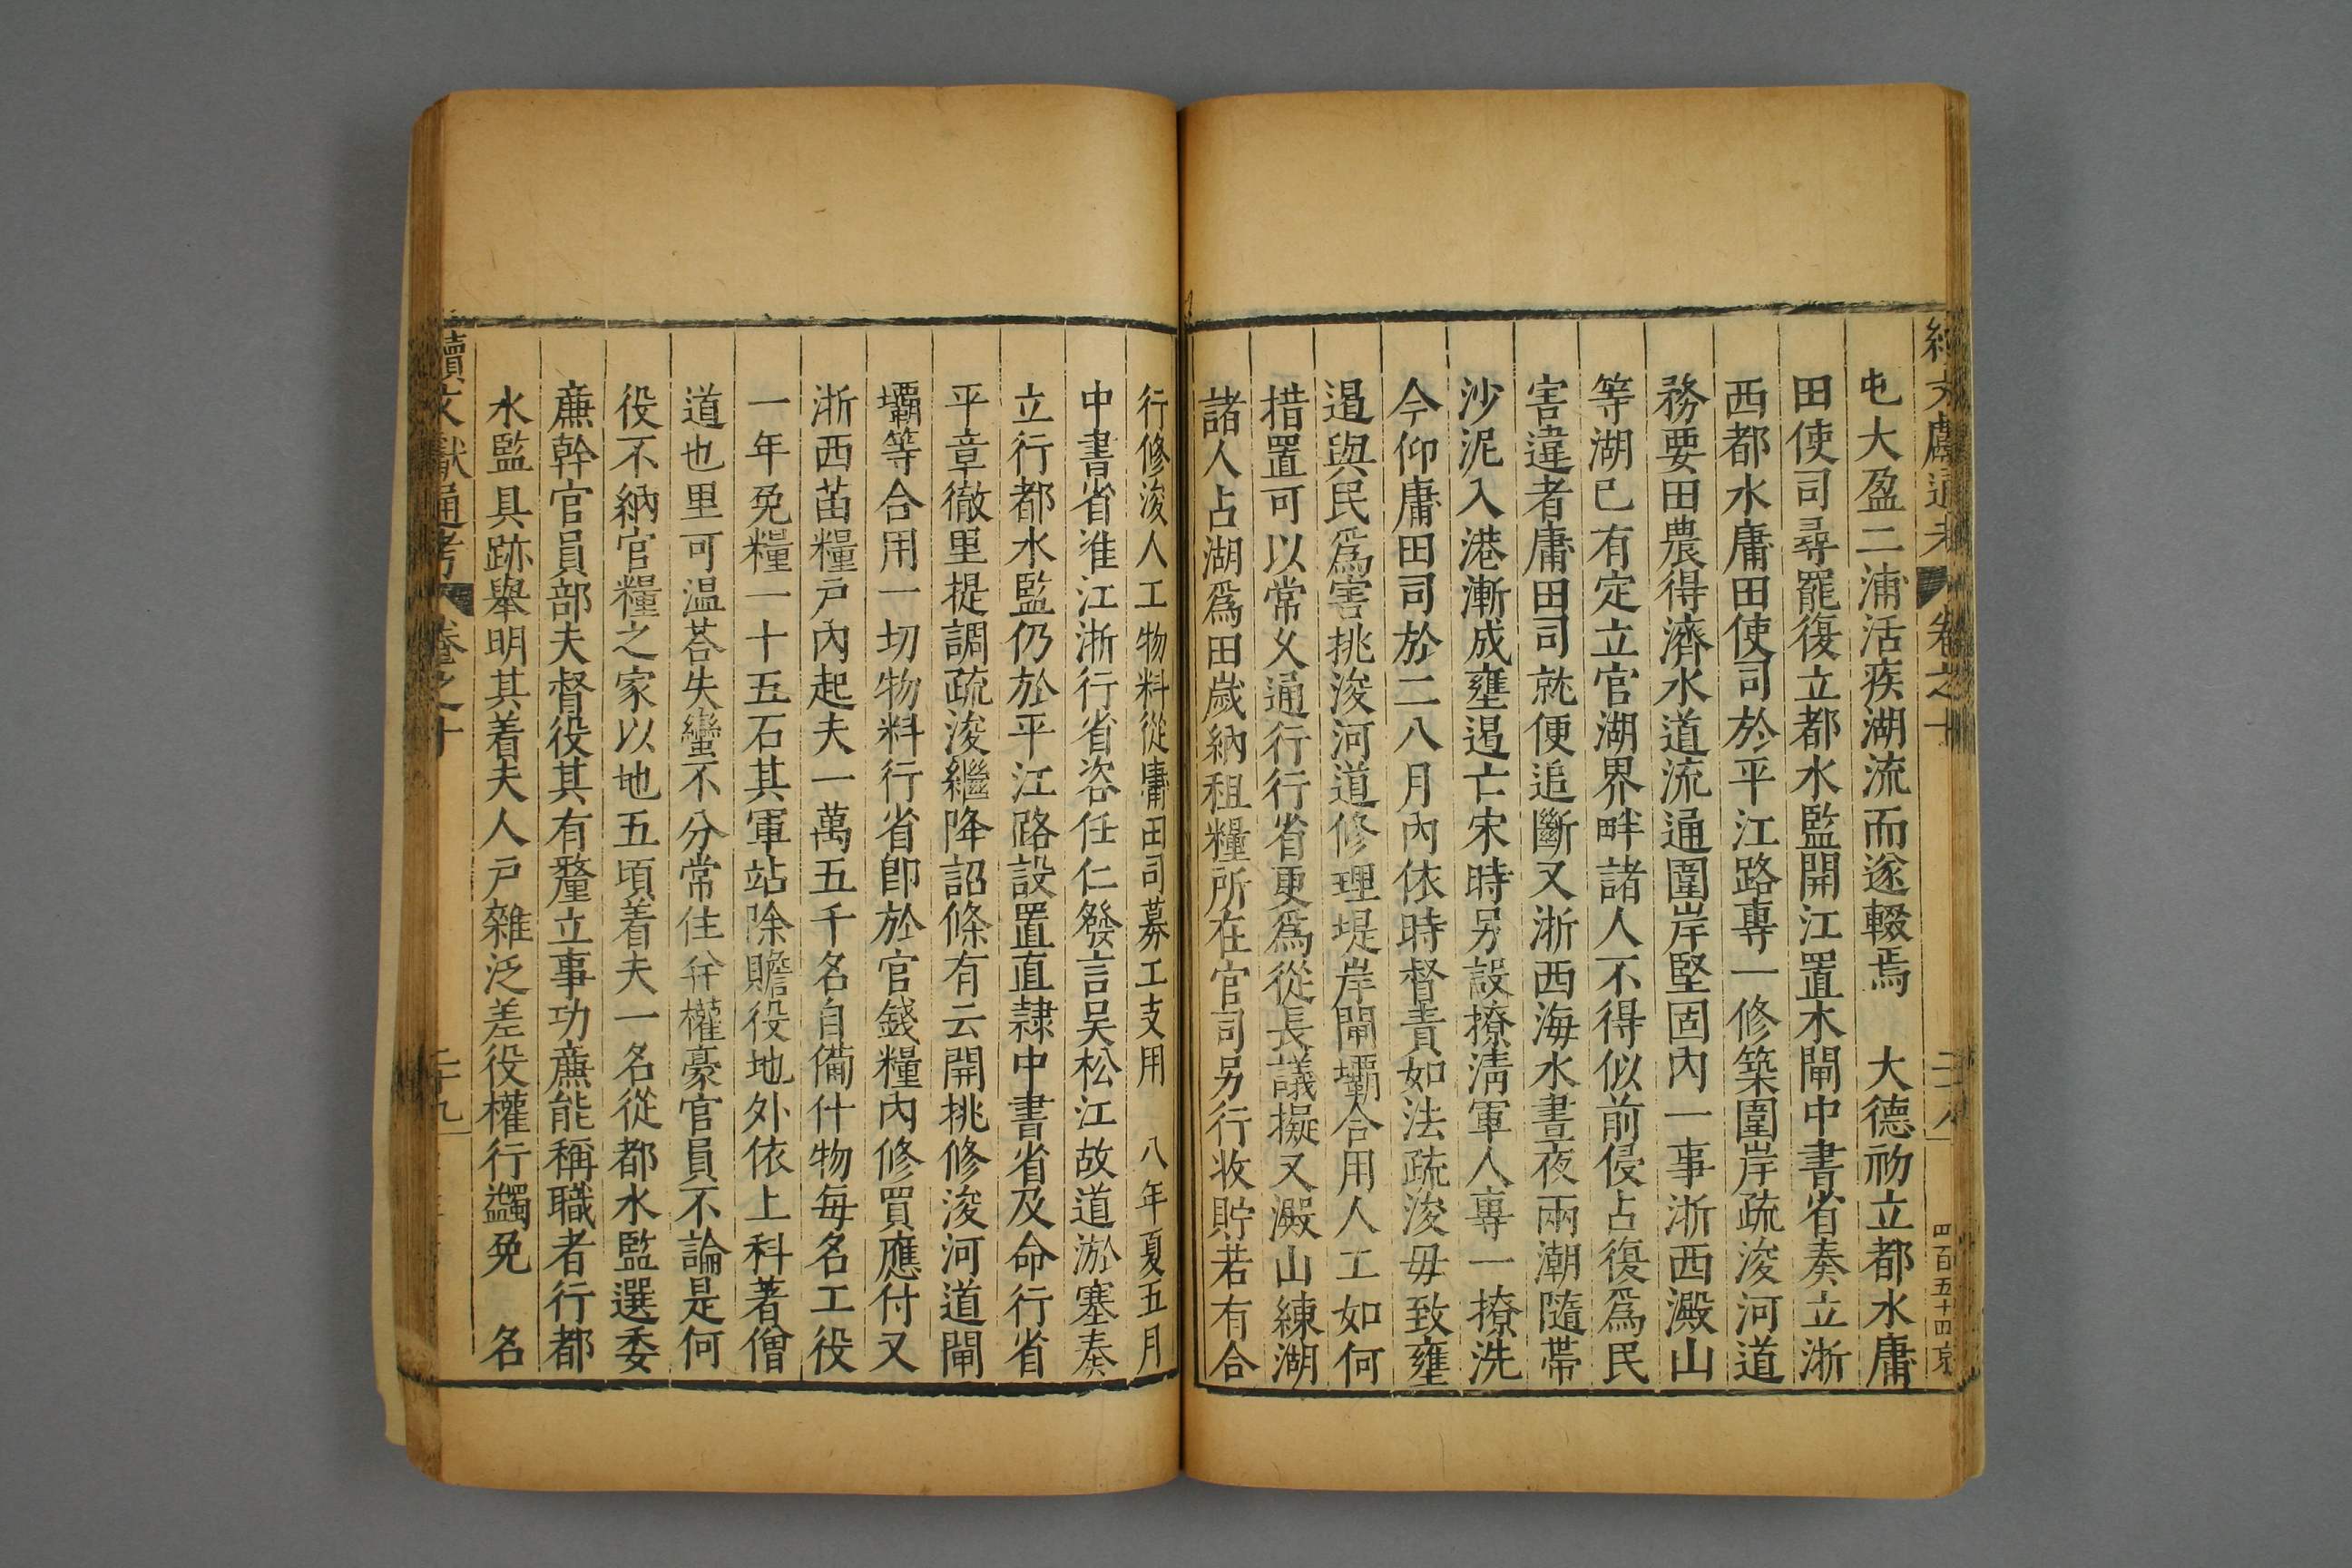 續文獻通考 卷之十 二十八 四百五十四 京
屯大盈二浦活疾湖流而遂輟焉 大德初立都水庸
田使司尋罷復立都水監開江置木閘中書省奏立浙
西都水庸田使司於平江路專一修築圍岸疏浚河道
務要田農得濟水道流通圍岸堅固內一事浙西澱山
等湖已有定立官湖界畔諸人不得似前侵占復爲民
害違者庸田司就便追斷又浙西海水晝夜兩潮隨帶
沙泥入港漸成壅遏亡宋時另設撩清軍人專一撩洗
今仰庸田司於二八月內依時督責如法疏浚毋致壅
遏與民爲害挑浚河道修理堤岸閘壩合用人工如何
措置可以常久通行行省更爲從長議擬又澱山練湖
諸人占湖爲田歲納租糧所在官司另行收貯若有合
行修浚人工物料從庸田司募工支用 八年夏五月
中書省准江浙行省咨任仁發言吳松江故道淤塞奏
立行都水監仍於平江路設置直隸中書省及命行省
平章徹里提調疏浚繼降詔條有云開挑修浚河道閘
壩等合用一切物料行省卽於官錢糧內修買應付又
浙西苗糧戶內起夫一萬五千名自備什物每名工役
一年免糧一十五石其軍站除贍役地外依上科著僧
道也里可温荅失蠻不分常住并權豪官員不論是何
役不納官糧之家以地五頃着夫一名從都水監選委
亷幹官員部夫督役其有釐立事功亷能稱職者行都
水監具跡舉明其着夫人戶雜泛差役權行蠲免 名
續文獻通考 卷之十 二十九